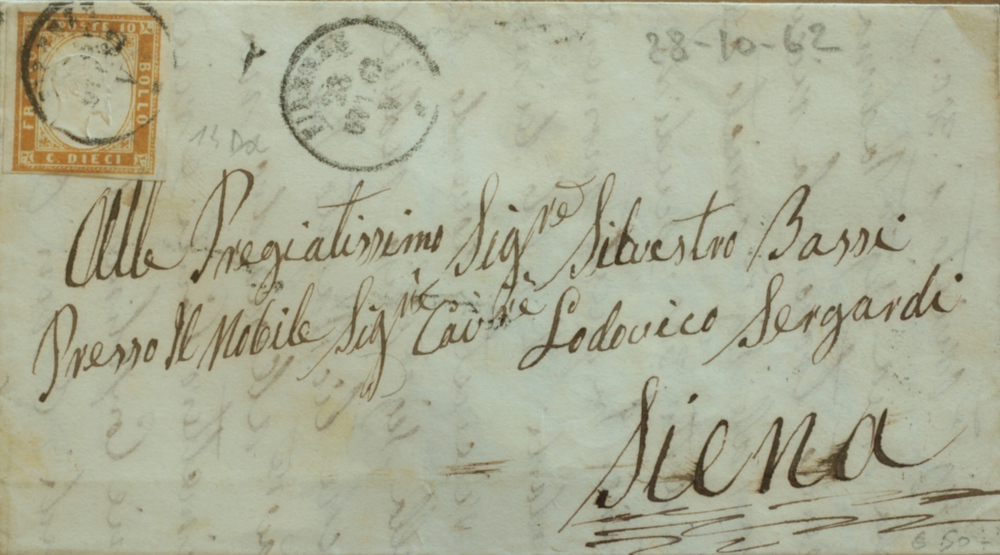 FRANCO POSTE 10 BOLLO
C. DIECI
FIRENZE
28 OTT 62
28-10-62
14 Do
Alle Pregiatissimo Sigre Silvestro Bassi
Presso Il Nobile Sigre Cavre Lodovico Sergardi
Siena
€ 50-